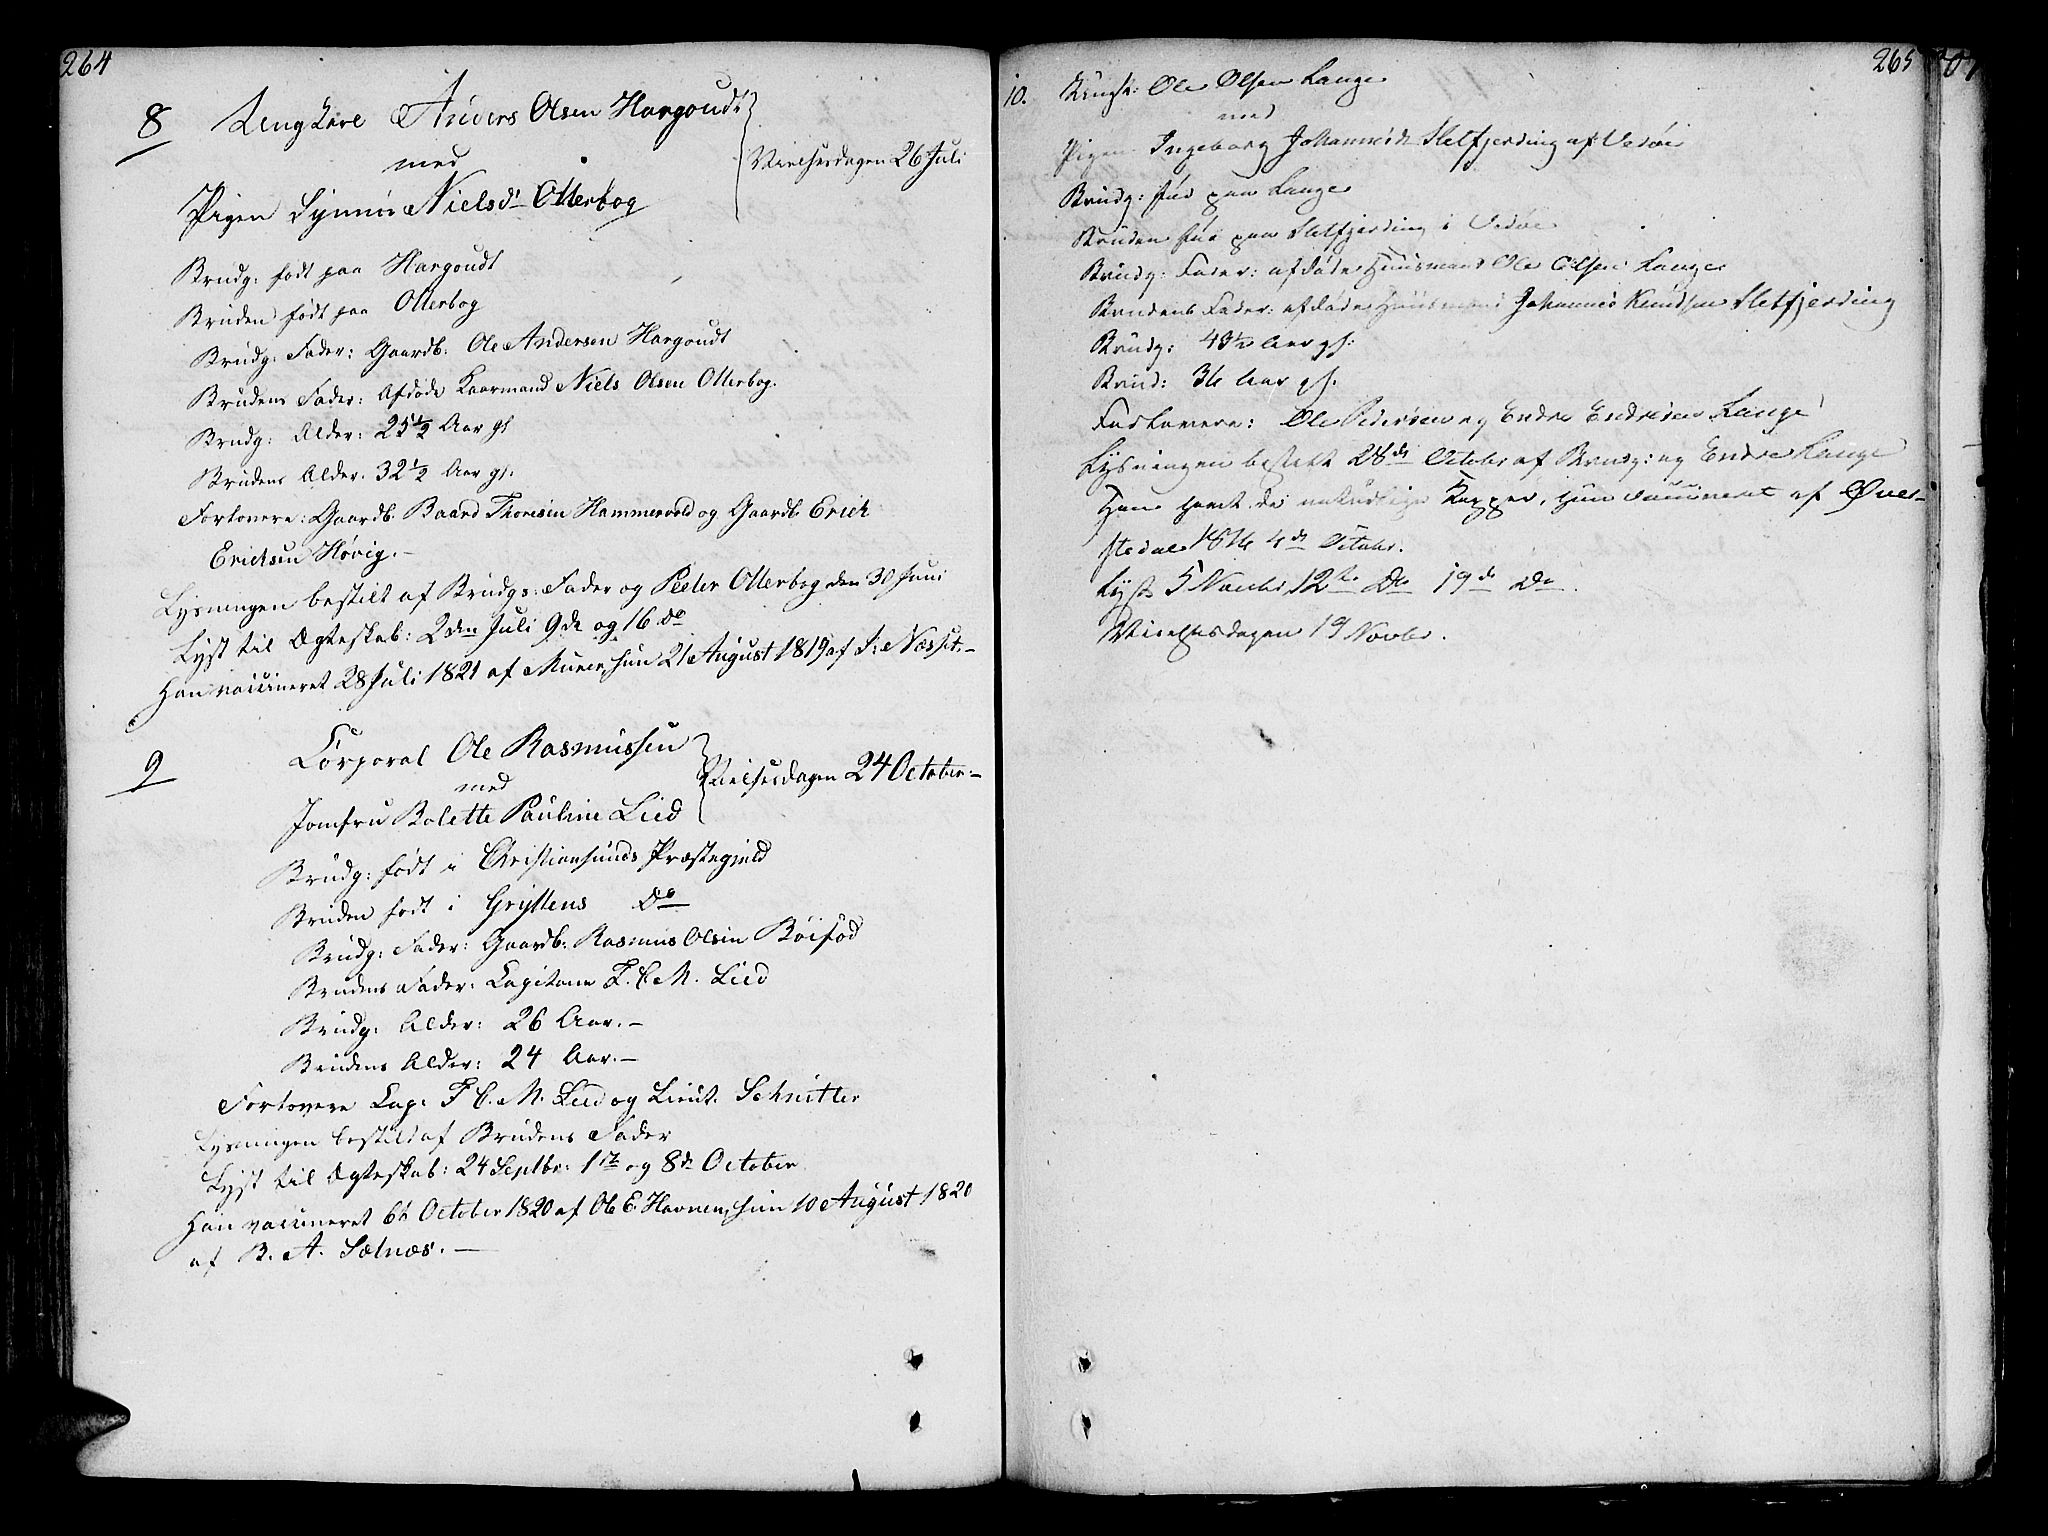 264
8 Ungkarl Anders Olsen Hargoudt
med
Vielsesdagen 26 Juli
Pigen Synnøv Nielsdr Otterbog
Brudg: født paa Hargoudt
Bruden født paa Otterbog
Brudg: Fader: Gaardb. Ole Andersen Hargoudt
Brudens Fader: Afdøde Kaarmand Niels Olsen Otterbog.
Brudg: Alder: 25½ Aar gl
Brudens Alder: 32½ Aar gl.
Forlovere: Gaardb. Baard Thoresen Hammervold og Gaardb. Erich
Erichsen Høvig.-
Lysningen bestilt af Brudgs: Fader og Peeter Otterbog den 30 Juni
Lyst til Ægteskab: 2den Juli 9de og 16 do
Han vaccineret 28 Juli 1821 af Muren, hun 21 August 1819 af I: Næsset.-
9
Corporal Ole Rasmussen
med
Vielsesdagen 24 October.-
Jomfru Bolette Pauline Lied
Brudg: født i Christiansunds Præstegjeld
Bruden født i Gryttens do
Brudg: Fader: Gaardb: Rasmus Olsen Røisød
Brudens Fader: Capitain T. C. M. Lied
Brudg: Alder: 26 Aar.-
Brudens Alder: 24 Aar.-
Forlovere Cap: T. C. M. Lied og Lieut. Schnitler
Lysningen bestilt af Brudens Fader
Lyst til Ægteskab: 24 Septbr: 1ste og 8de October
Han vaccineret 6te October 1820 af Ole E. Havnen, hun 10 August 1820
af B. A. Sælnæs.-
265
10. Ungk: Ole Olsen Lange
med
Pigen Ingeborg Johannesdr Sletfjerding af Vedøe
Brudg: fød paa Lange
Bruden fød paa Sletfjerding i Vedøe
Brudg: Fader: afdøde Huusmand Ole Olsen Lange
Brudens Fader: afdøde Huusmand Johannes Knudsen Sletfjerding
Brudg: 43½ Aar gl.
Brud: 36 Aar gl.
Forlovere: Ole Pedersen og Endre Endresen Lange
Lysningen bestilt 28de Octobr af Brudg: og Endre Lange
Han havt de naturlige Kopper, hun vaccineret af Øver-
stedal 1816 4de Octobr.
Lyst 5 Novbr, 12te do 19de do.
Vielsesdagen 19 Novbr.